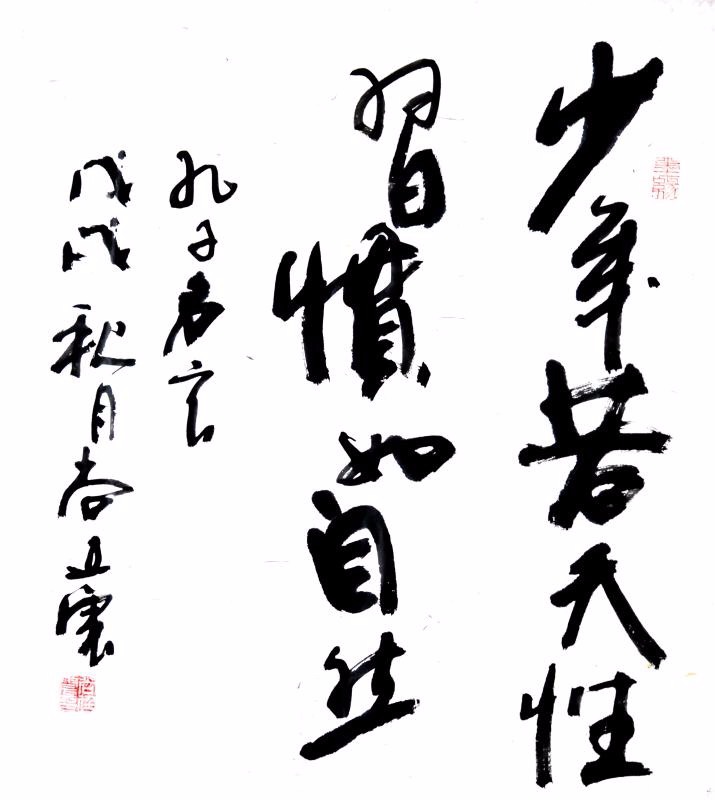 少年若天性
習慣如自然
孔子名言
戊戌秋月尚立